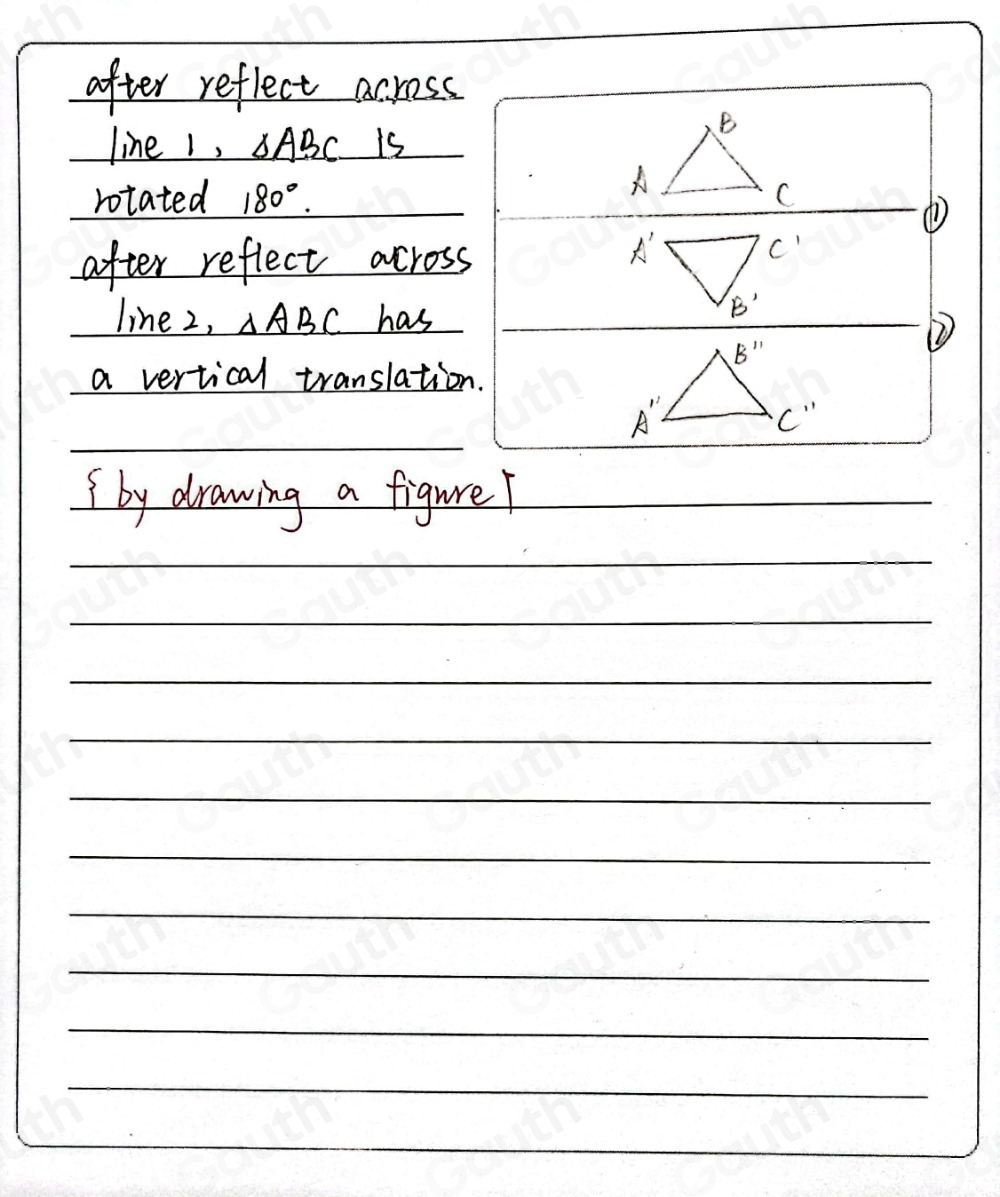 after reflect across
line 1, △ABC is
rotated 180°.
after reflect across
line 2, △ABC has
a vertical translation.
B
A
C
①
A'
C'
B'
②
B"
A"
C"
by drawing a figure
Gauth